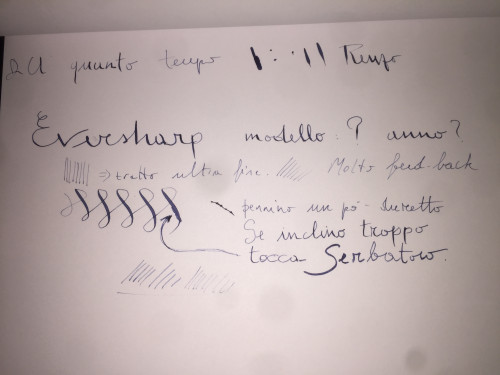 quanto tempo Renzo
Eversharp modello: ? anno?
=> tratto ultra fine. Molto feed-back
pennino un pò duretto
Se inclino troppo
tocca Serbatoio.